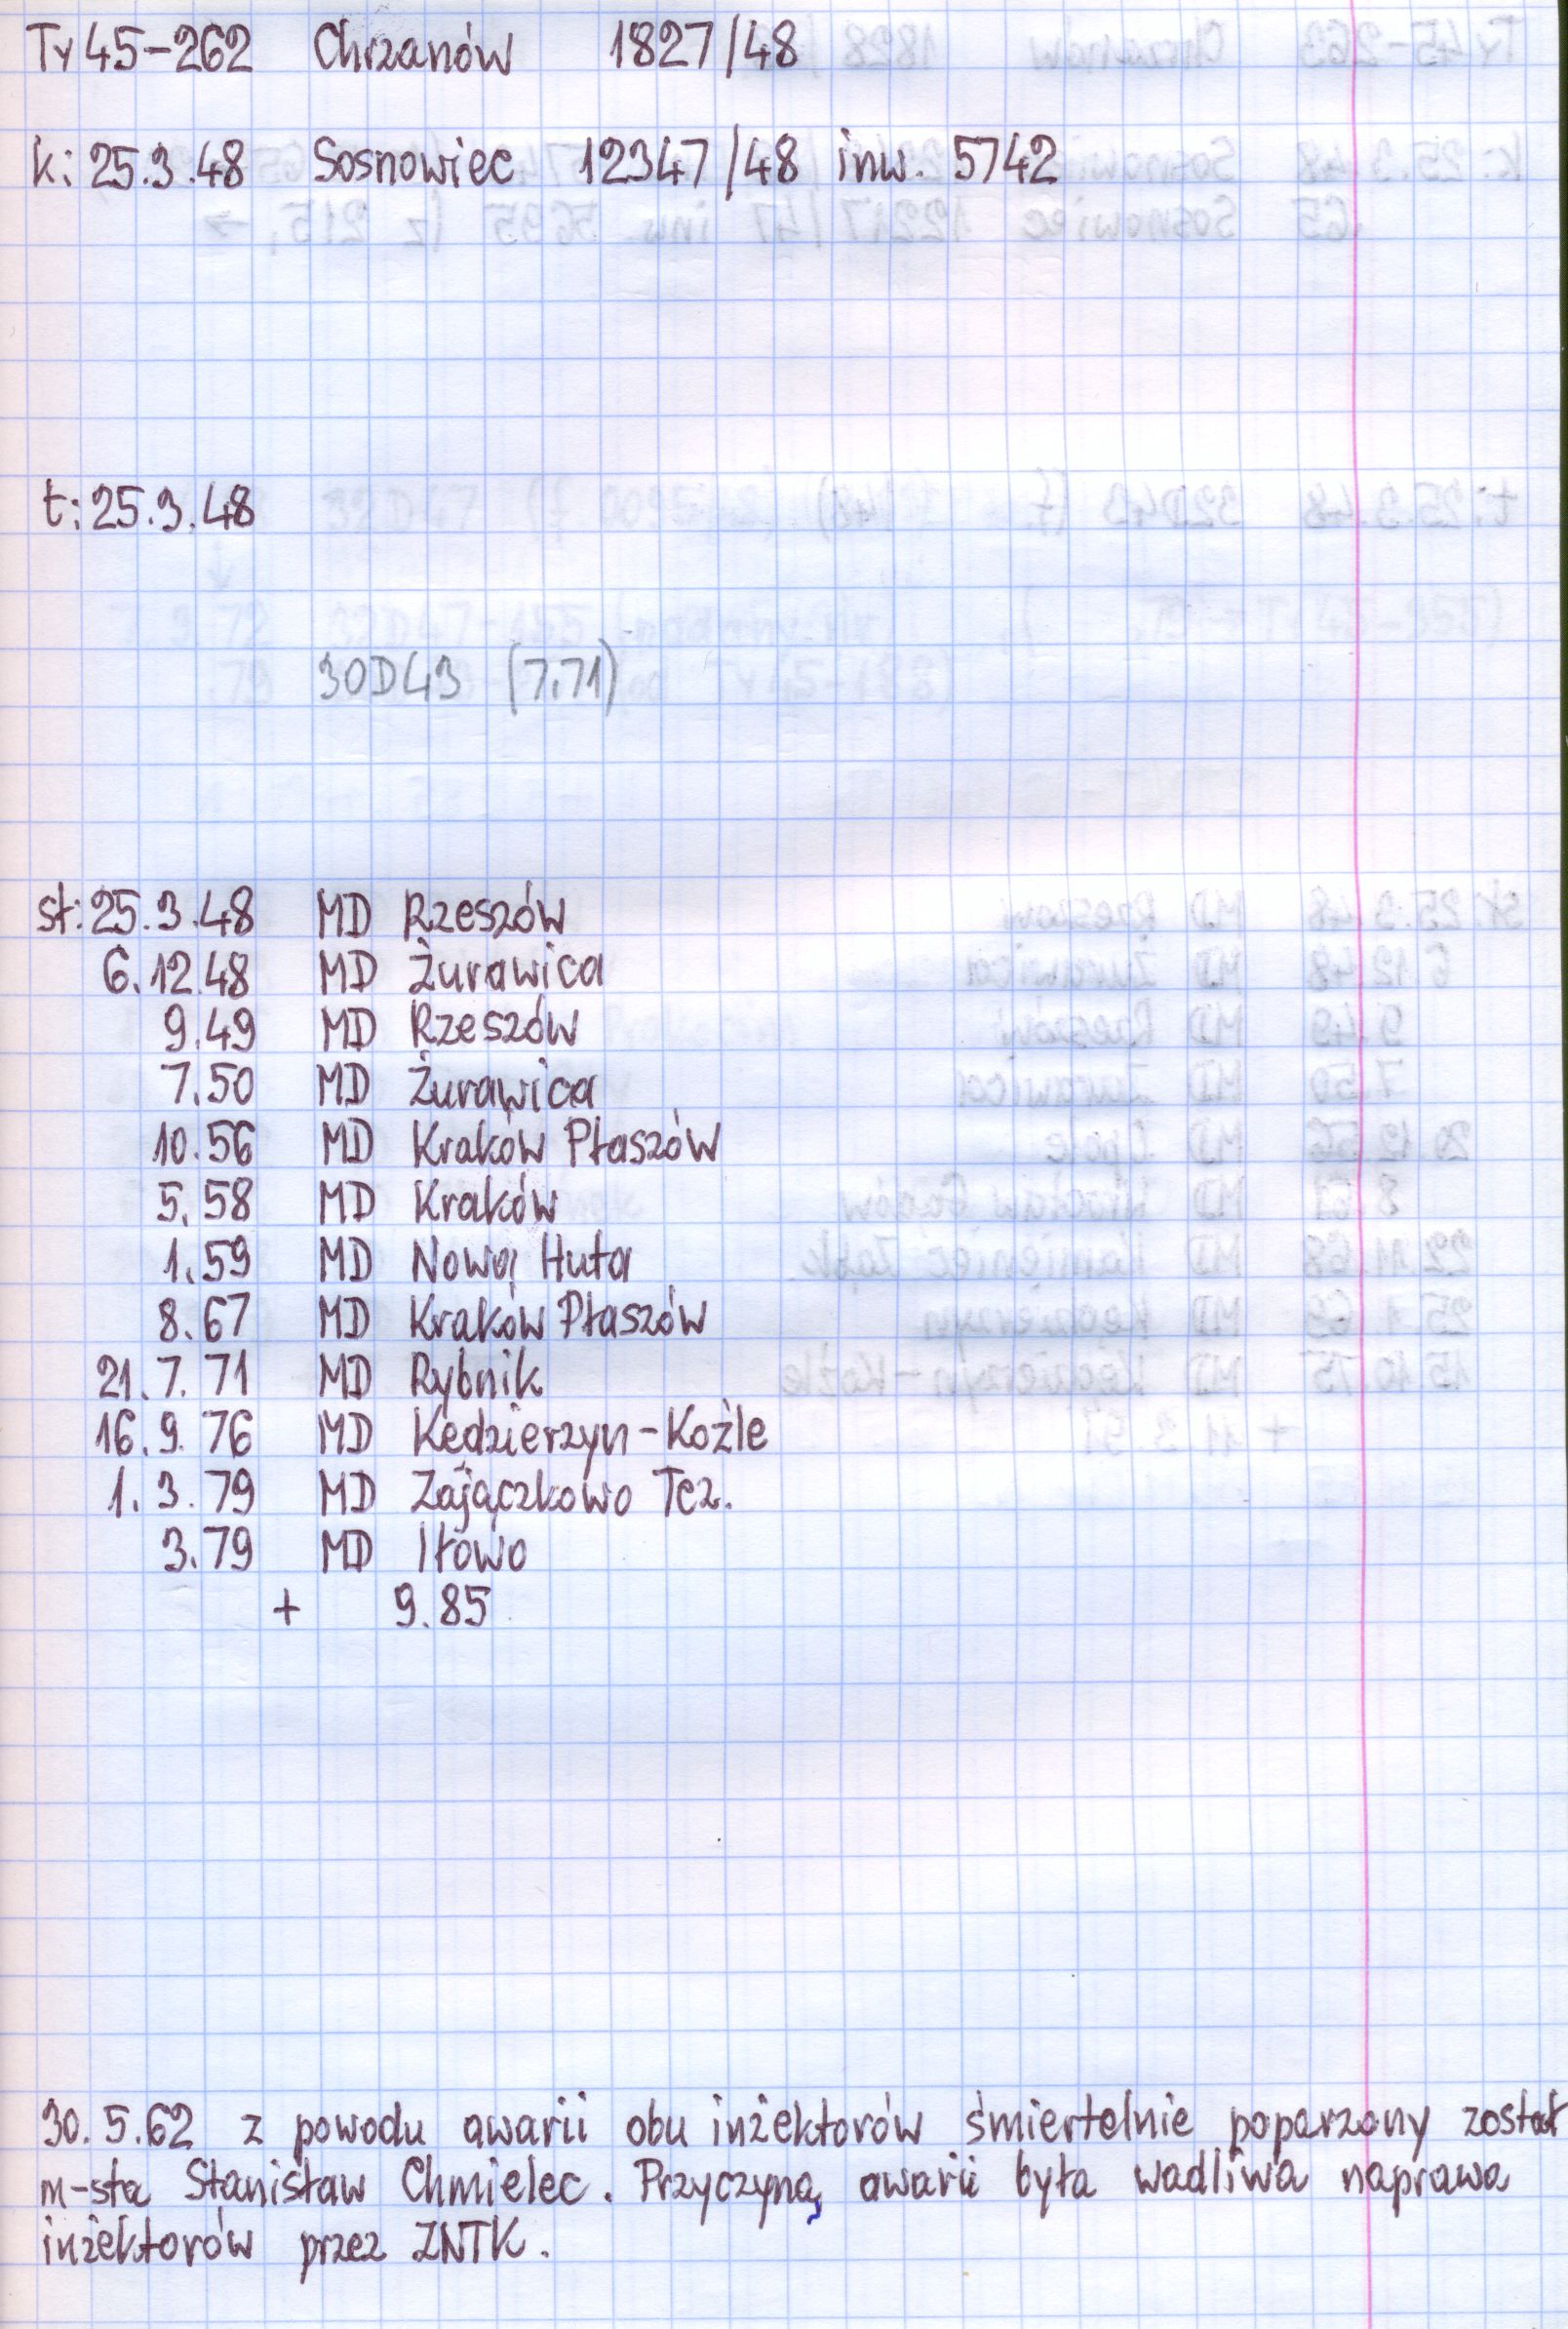 Ty45-262 Chrzanów 1827/48
k: 25.3.48 Sosnowiec 12347/48 inw. 5742
t: 25.3.48
30D43 (7.71)
st: 25.3.48 MD Rzeszów
6.12.48 MD Żurawica
9.49 MD Rzeszów
7.50 MD Żurawica
10.56 MD Kraków Płaszów
5.58 MD Kraków
1.59 MD Nowa Huta
8.67 MD Kraków Płaszów
21.7.71 MD Rybnik
16.9.76 MD Kędzierzyn-Koźle
1.3.79 MD Zajączkowo Tcz.
3.79 MD Iłowo
+ 9.85
30.5.62 z powodu awarii obu inżektorów śmiertelnie poparzony został
m-sta Stanisław Chmielec. Przyczyną awarii była wadliwa naprawa
inżektorów przez ZNTK.